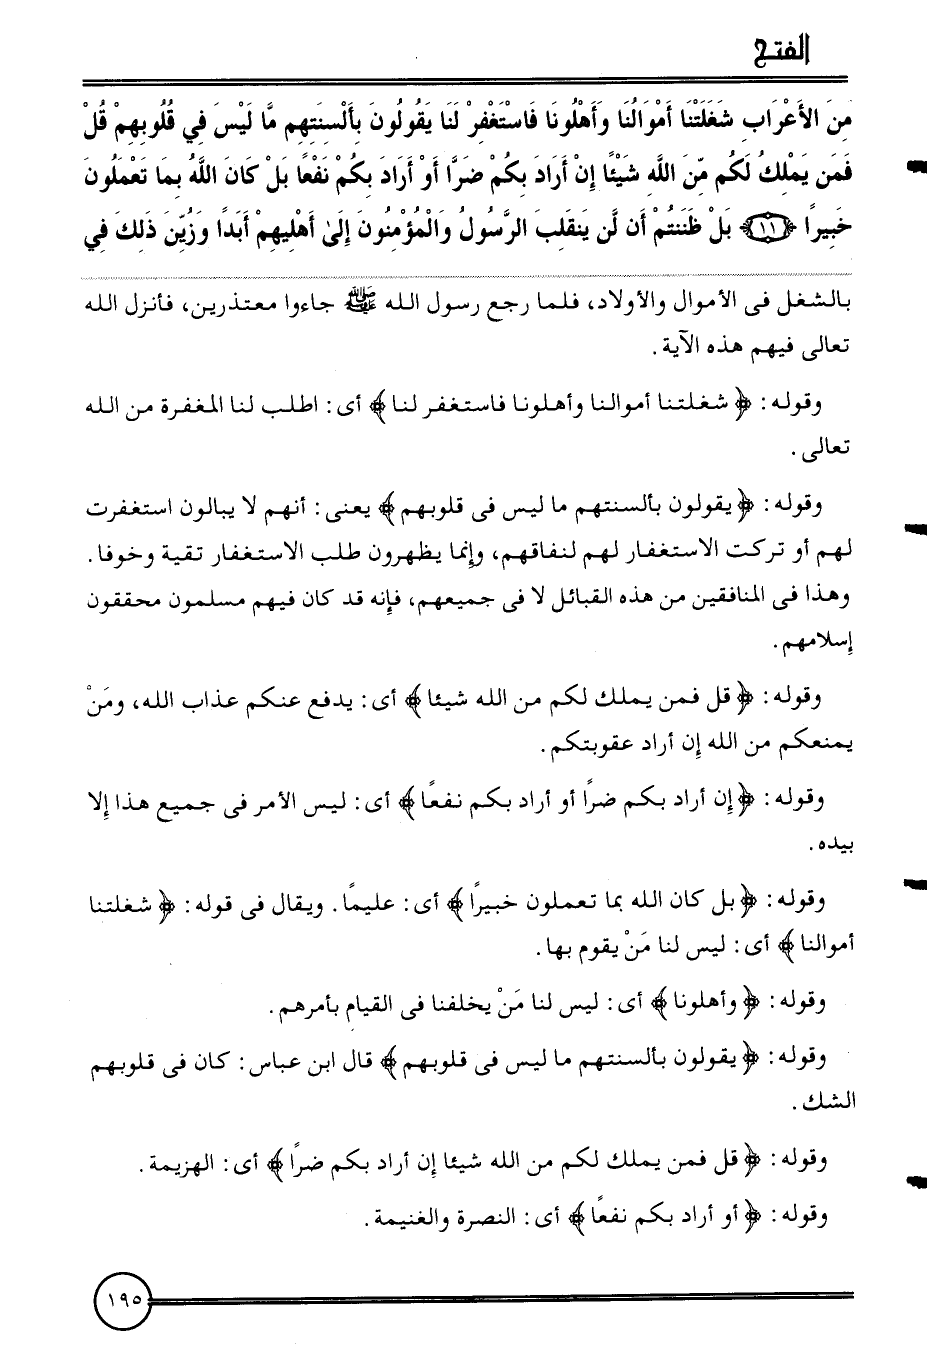 الفتح
مِنَ الأَعْرَابِ شَغَلَتْنَا أَمْوَالُنَا وَأَهْلُونَا فَاسْتَغْفِرْ لَنَا يَقُولُونَ بِأَلْسِنَتِهِم مَّا لَيْسَ فِي قُلُوبِهِمْ قُلْ
فَمَن يَمْلِكُ لَكُم مِّنَ اللَّهِ شَيْئًا إِنْ أَرَادَ بِكُمْ ضَرًّا أَوْ أَرَادَ بِكُمْ نَفْعًا بَلْ كَانَ اللَّهُ بِمَا تَعْمَلُونَ
خَبِيرًا ﴿١١﴾ بَلْ ظَنَنتُمْ أَن لَّن يَنقَلِبَ الرَّسُولُ وَالْمُؤْمِنُونَ إِلَىٰ أَهْلِيهِمْ أَبَدًا وَزُيِّنَ ذَلِكَ فِي
بالشغل فى الأموال والأولاد، فلما رجع رسول الله ﷺ جاءوا معتذرين، فأنزل الله
تعالى فيهم هذه الآية.
وقوله: ﴿ شغلتنا أموالنا وأهلونا فاستغفر لنا ﴾ أى: اطلب لنا المغفرة من الله
تعالى.
وقوله: ﴿ يقولون بألسنتهم ما ليس فى قلوبهم ﴾ يعنى: أنهم لا يبالون استغفرت
لهم أو تركت الاستغفار لهم لنفاقهم، وإنما يظهرون طلب الاستغفار تقية وخوفا.
وهذا فى المنافقين من هذه القبائل لا فى جميعهم، فإنه قد كان فيهم مسلمون محققون
إسلامهم.
وقوله: ﴿ قل فمن يملك لكم من الله شيئا ﴾ أى: يدفع عنكم عذاب الله، ومَنْ
يمنعكم من الله إن أراد عقوبتكم.
وقوله: ﴿ إن أراد بكم ضرًا أو أراد بكم نفعًا ﴾ أى: ليس الأمر فى جميع هذا إلا
بيده.
وقوله: ﴿ بل كان الله بما تعملون خبيرًا ﴾ أى: عليمًا. ويقال فى قوله: ﴿ شغلتنا
أموالنا ﴾ أى: ليس لنا مَنْ يقوم بها.
وقوله: ﴿ وأهلونا ﴾ أى: ليس لنا مَنْ يخلفنا فى القيام بأمرهم.
وقوله: ﴿ يقولون بألسنتهم ما ليس فى قلوبهم ﴾ قال ابن عباس: كان فى قلوبهم
الشك.
وقوله: ﴿ قل فمن يملك لكم من الله شيئا إن أراد بكم ضرًا ﴾ أى: الهزيمة.
وقوله: ﴿ أو أراد بكم نفعًا ﴾ أى: النصرة والغنيمة.
١٩٥